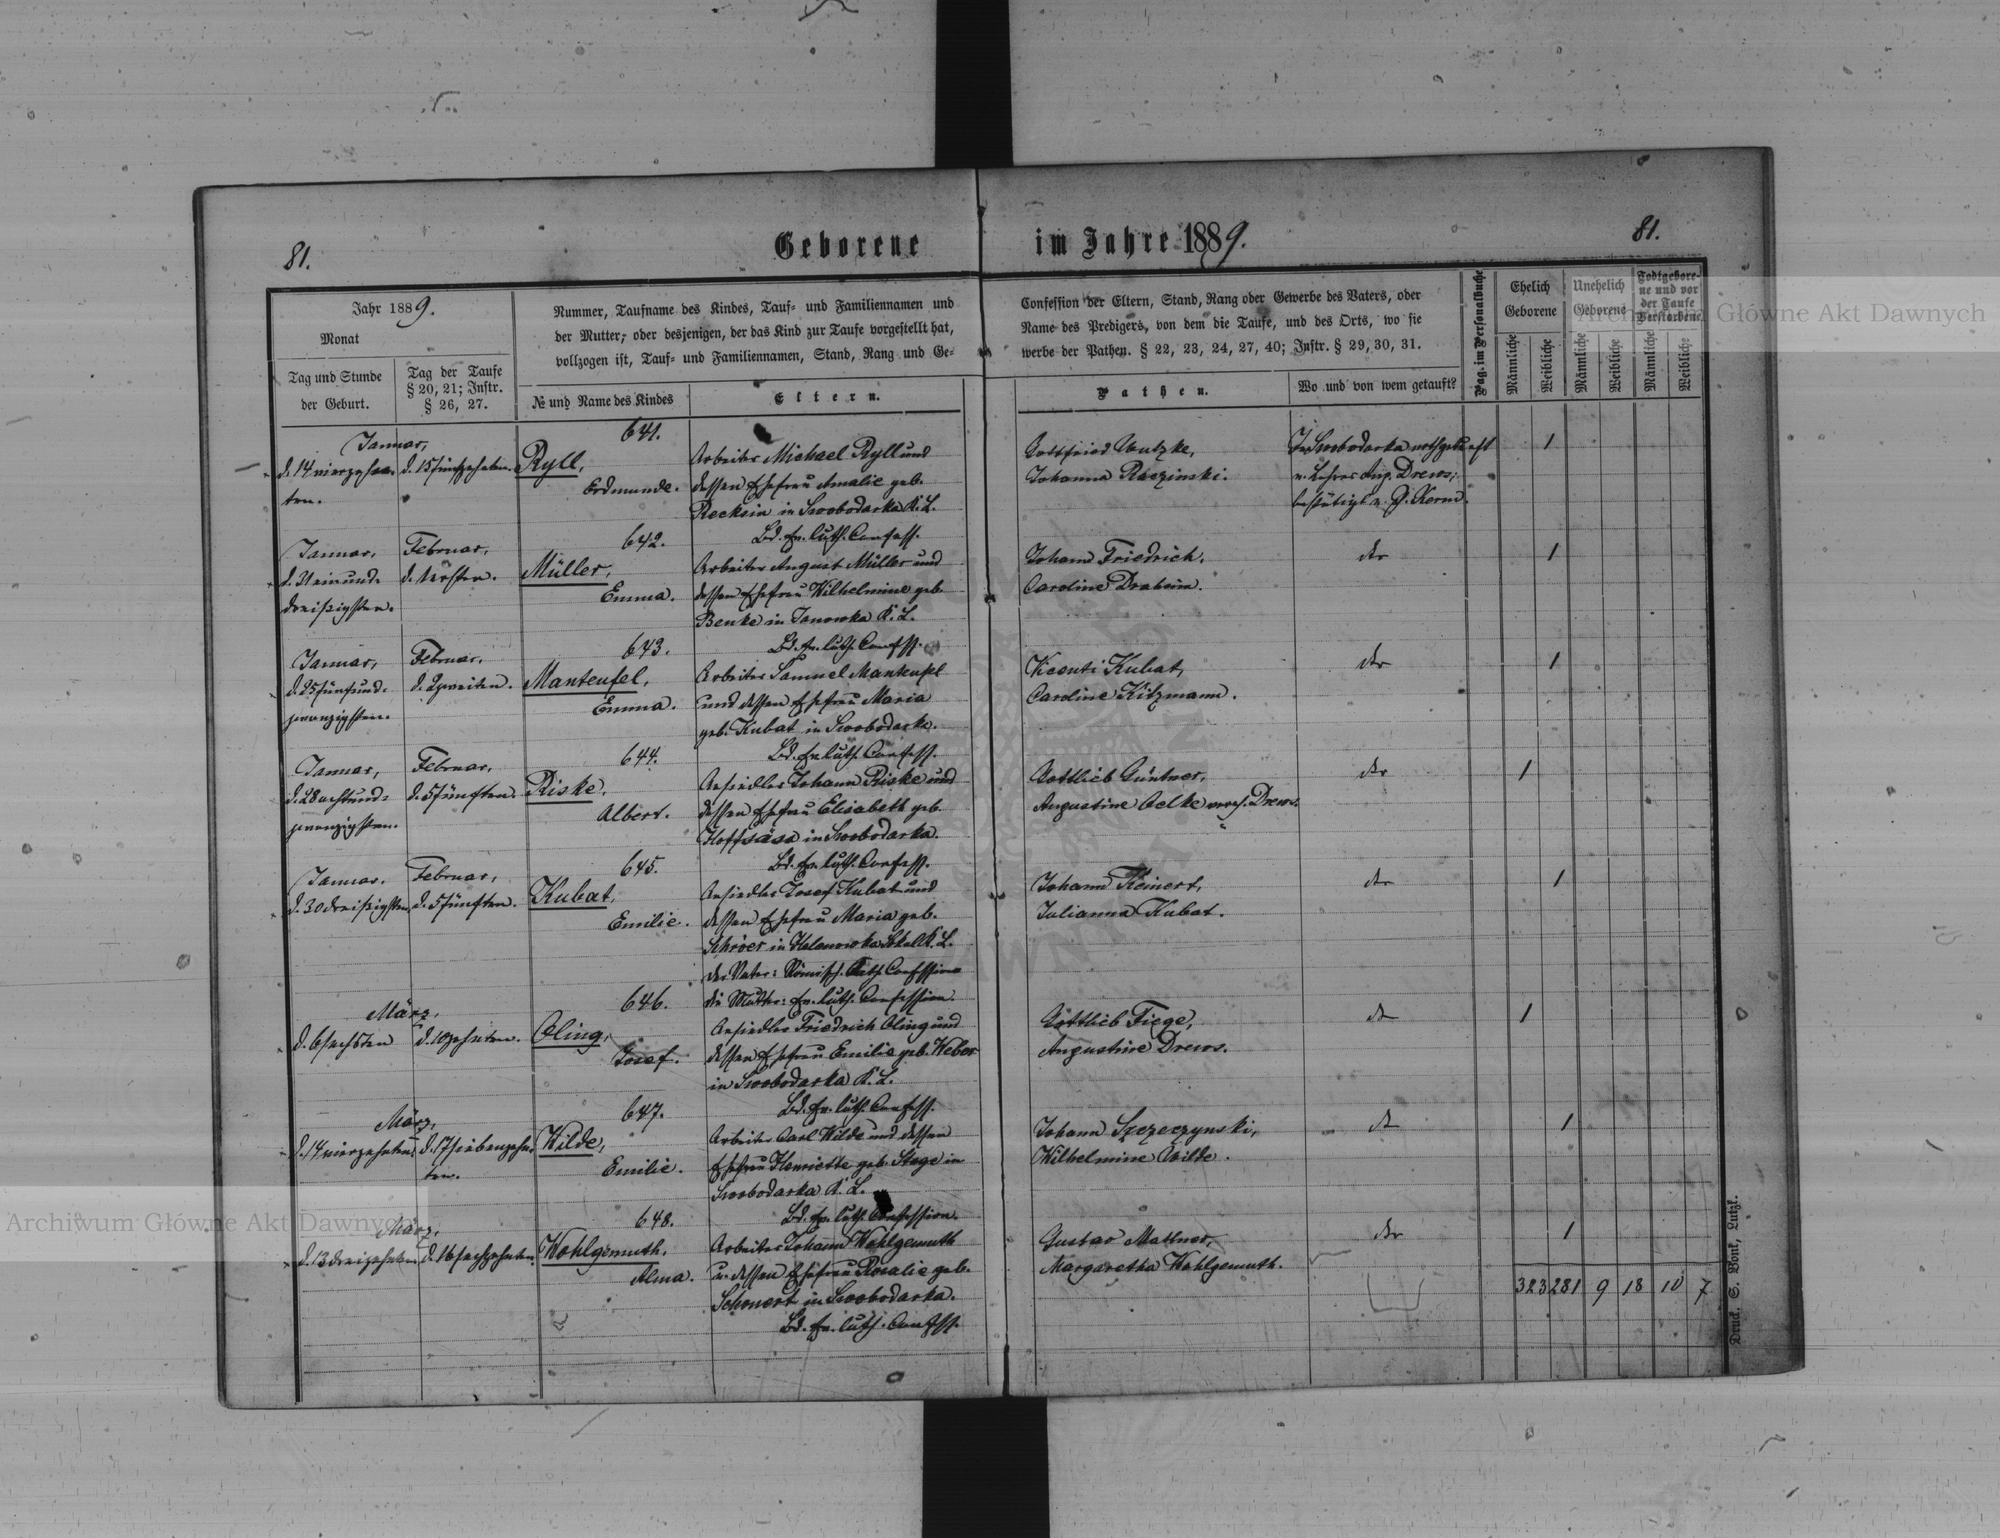 81.
Geborene
im Jahre 1889.
81.
Jahr 1889.
Monat
Tag und Stunde
der Geburt.
Tag der Taufe
§ 20, 21; Instr.
§ 26, 27.
Nummer, Taufname des Kindes, Tauf- und Familiennamen und
der Mutter; oder desjenigen, der das Kind zur Taufe vorgestellt hat,
vollzogen ist, Tauf- und Familiennamen, Stand, Rang und Ge-
№ und Name des Kindes
Eltern.
Confession der Eltern, Stand, Rang oder Gewerbe des Vaters, oder
Name des Predigers, von dem die Taufe, und des Orts, wo sie
werbe der Pathen. § 22, 23, 24, 27, 40; Instr. § 29, 30, 31.
Pathen.
Wo und von wem getauft?
Pag. im Personalbuche
Ehelich
Geborene
Unehelich
Geborene
Todtgebore-
ne und vor
der Taufe
Verstorbene
Männliche
Weibliche
Männliche
Weibliche
Männliche
Weibliche
Januar,
d. 14 vierzehn-
ten.
d. 15 fünfzehnten.
641.
Ryll,
Erdmunde.
Arbeiter Michael Ryll und
dessen Ehefrau Amalie geb.
Recksin in Swobodarka K. L.
Bd. ev. luth. Confess.
Gottfried Wutzke,
Johanna Raszinski.
In Swobodarka nothgetauft
v. Lehrer Aug. Drews;
bestätigt v. P. Kerm.
1
Januar,
d. 31 einund-
dreißigsten.
Februar,
d. 1 ersten.
642.
Müller,
Emma.
Arbeiter August Müller und
dessen Ehefrau Wilhelmine geb.
Benke in Janowka K. L.
Bd. ev. luth. Confess.
Johann Friedrich,
Caroline Draheim.
dto
1
Januar,
d. 25 fünfund-
zwanzigsten.
Februar,
d. 2 zweiten.
643.
Manteufel,
Emma.
Arbeiter Samuel Manteufel
und dessen Ehefrau Maria
geb. Kubat in Swobodarka.
Bd. ev. luth. Confess.
Vicenti Kubat,
Caroline Kitzmann.
dto
1
Januar,
d. 28 achtund-
zwanzigsten.
Februar,
d. 5 fünften.
644.
Riske,
Albert.
Ansiedler Johann Riske und
dessen Ehefrau Elisabeth geb.
Hoffsäss in Swobodarka.
Bd. ev. luth. Confess.
Gottlieb Güntner,
Augustine Oelke verh. Drews.
dto
1
Januar,
d. 30 dreißigsten
Februar,
d. 5 fünften.
645.
Kubat,
Emilie.
Ansiedler Josef Kubat und
dessen Ehefrau Maria geb.
Schröer in Helenowka K. L.
der Vater: Römisch. Kath. Confession
die Mutter: ev. luth. Confession.
Johann Reinert,
Julianna Kubat.
dto
1
März,
d. 6 sechsten
d. 10 zehnten.
646.
Oling,
Josef.
Ansiedler Friedrich Oling und
dessen Ehefrau Emilie geb. Weber
in Swobodarka K. L.
Bd. ev. luth. Confess.
Gottlieb Fiege,
Augustine Drews.
dto
1
März,
d. 14 vierzehnten
d. 17 siebenzehn-
ten.
647.
Wilde,
Emilie.
Arbeiter Carl Wilde und dessen
Ehefrau Henriette geb. Stege in
Swobodarka K. L.
Bd. ev. luth. Confession.
Johann Szczeczynski,
Wilhelmine Wilde.
dto
1
März,
d. 13 dreizehnten
d. 16 sechzehnten.
648.
Wohlgemuth,
Alma.
Arbeiter Johann Wohlgemuth
u. dessen Ehefrau Rosalie geb.
Schonert in Swobodarka.
Bd. ev. luth. Confess.
Gustav Mattner,
Margaretha Wohlgemuth.
dto
1
323 281 9 18 10 7
Druck. S. Bonk, Lutzk.
Archiwum Główne Akt Dawnych
Archiwum Główne Akt Dawnych